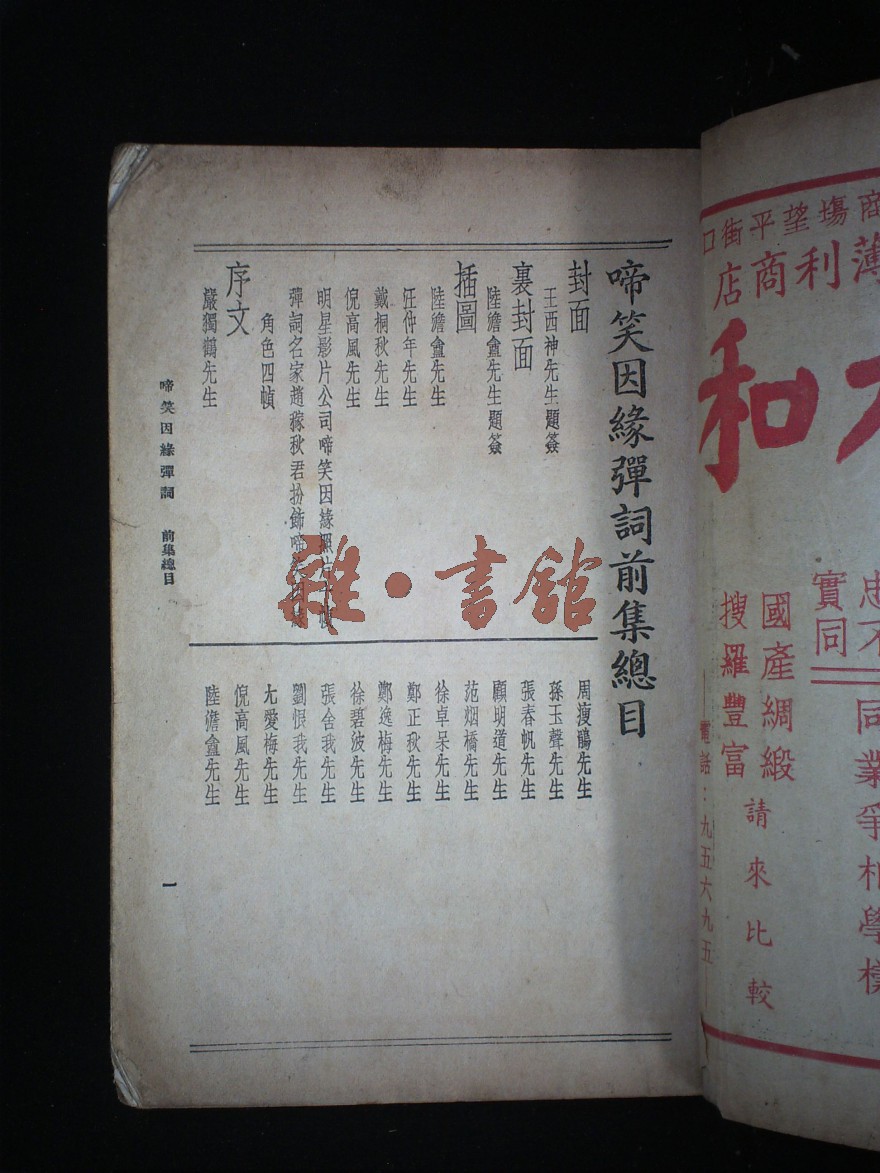 啼笑因緣彈詞前集總目
封面
王西神先生題簽
裏封面
陸澹盦先生題簽
插圖
陸澹盦先生
汪仲年先生
戴桐秋先生
倪高風先生
明星影片公司啼笑因緣照片
彈詞名家趙稼秋君扮飾啼笑因緣
角色四幀
序文
嚴獨鶴先生
周瘦鵑先生
孫玉聲先生
張春帆先生
顧明道先生
范烟橋先生
徐卓呆先生
鄭正秋先生
鄭逸梅先生
徐碧波先生
張舍我先生
劉恨我先生
尤愛梅先生
倪高風先生
陸澹盦先生
啼笑因緣彈詞 前集總目
一
雜·書館
商塲望平街口
薄利商店
和
忠
實不同
同業爭相學樣
國產綢緞
搜羅豐富
請來比較
電話：九五六九五